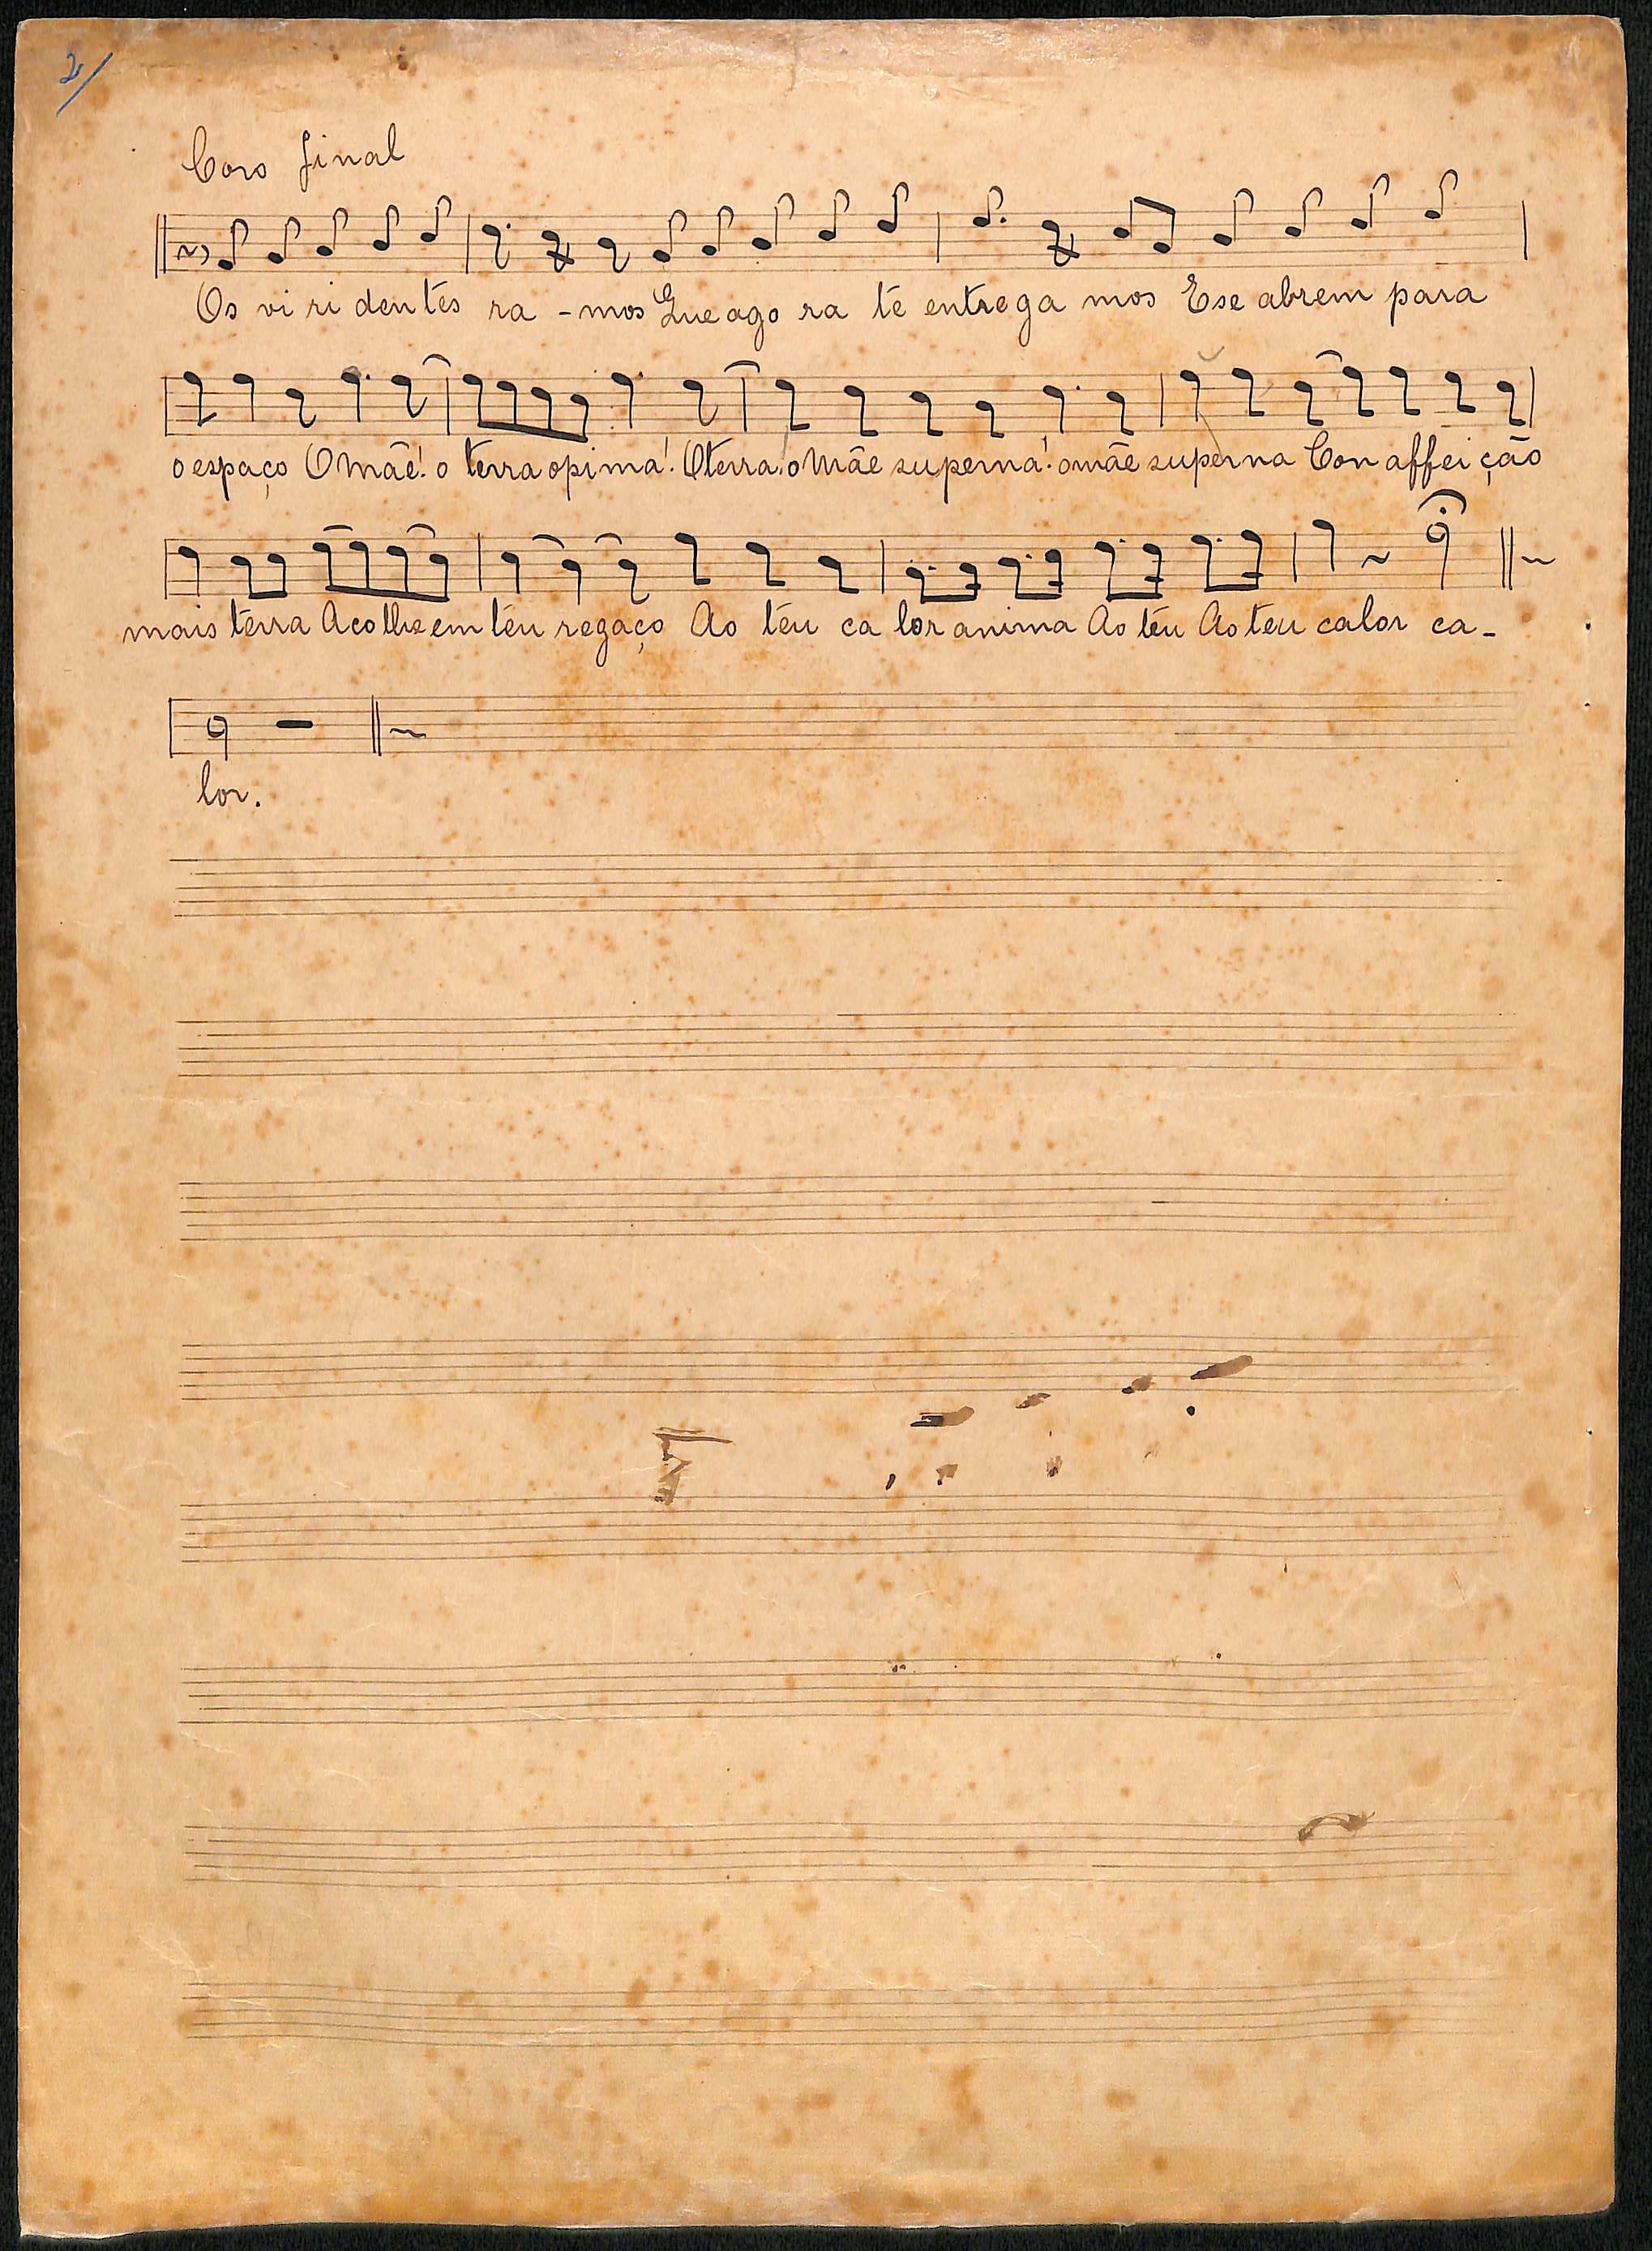 2/
Coro final
Os vi ri den tes ra - mos Que ago ra te entrega mos E se abrem para
o espaço O Mãe! o terra opima! O terra! o Mãe superna! o mãe superna Con affei ção
mais terra Acolhe em teu regaço Ao teu ca lor anima Ao teu Ao teu calor ca-
lor.